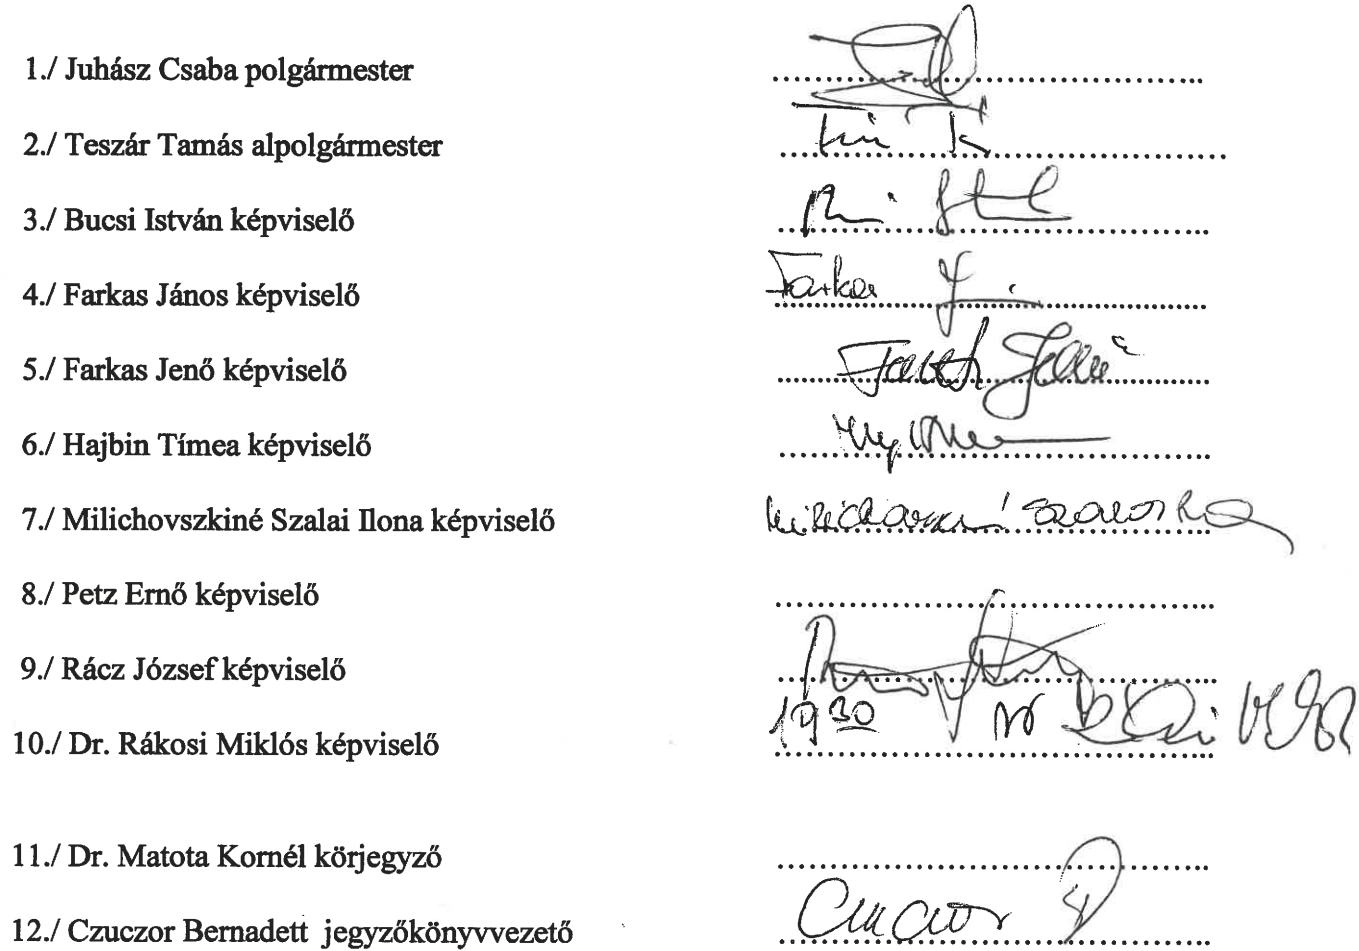 1./ Juhász Csaba polgármester
2./ Teszár Tamás alpolgármester
3./ Bucsi István képviselő
4./ Farkas János képviselő
Farkas
5./ Farkas Jenő képviselő
Farkas Jenő
6./ Hajbin Tímea képviselő
7./ Milichovszkiné Szalai Ilona képviselő
8./ Petz Ernő képviselő
9./ Rácz József képviselő
19 30
10./ Dr. Rákosi Miklós képviselő
11./ Dr. Matota Kornél körjegyző
12./ Czuczor Bernadett jegyzőkönyvvezető
Czuczor